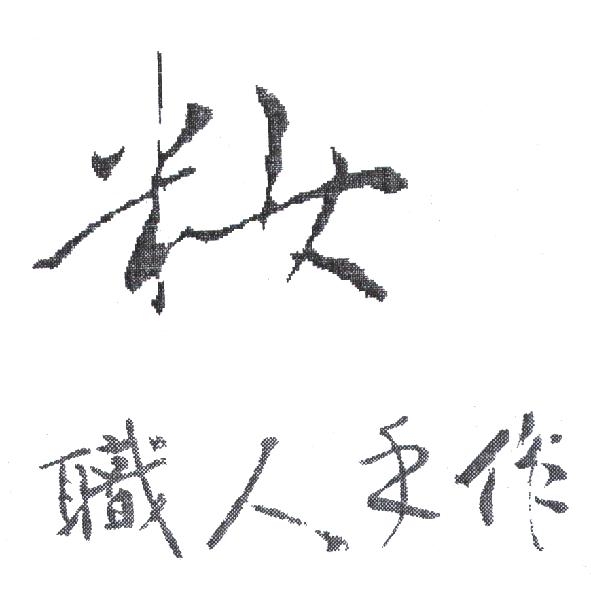 職人手作